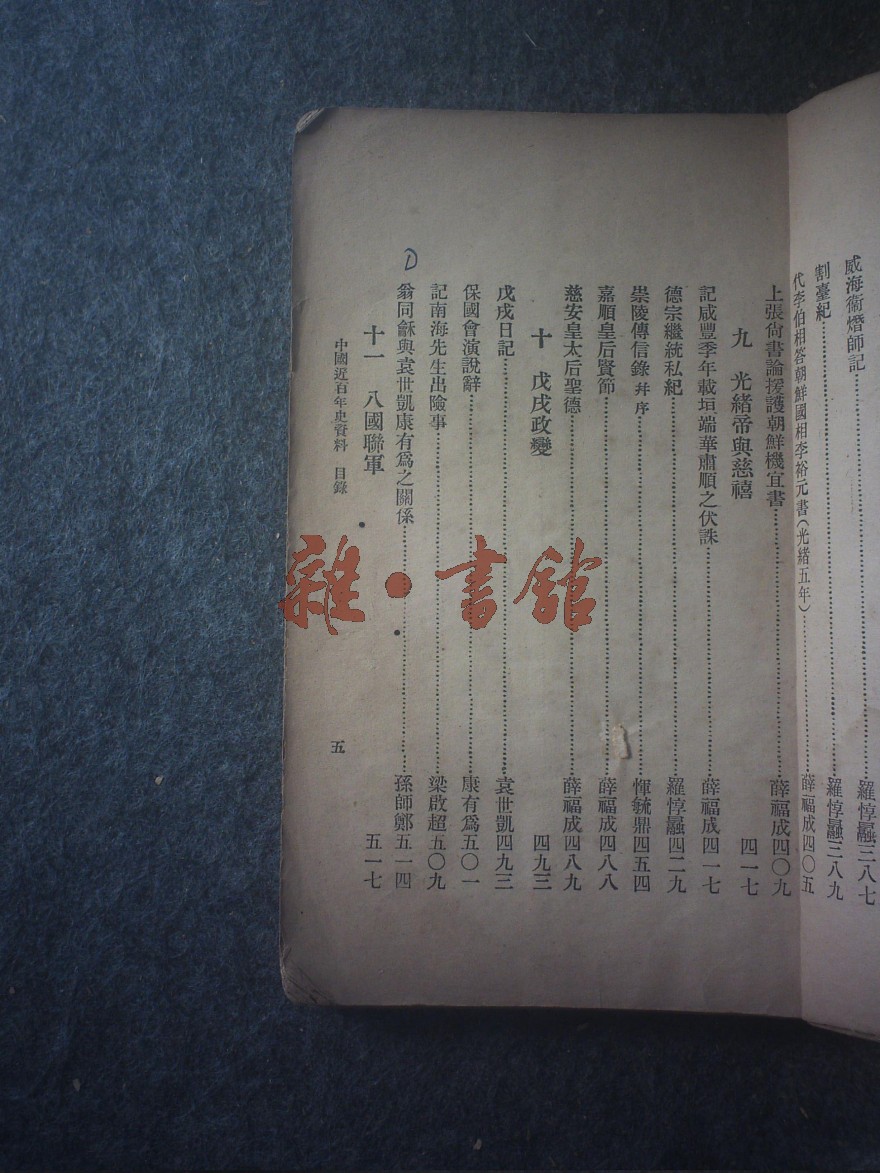 威海衞熸師記……羅惇曧三八七
割臺紀……羅惇曧三八九
代李伯相答朝鮮國相李裕元書(光緒五年)……薛福成四〇五
上張尙書論援護朝鮮機宜書……薛福成四〇九
九 光緒帝與慈禧 四一七
記咸豐季年載垣端華肅順之伏誅……薛福成四一七
德宗繼統私紀……羅惇曧四二九
崇陵傳信錄 幷序……惲毓鼎四五四
嘉順皇后賢節……薛福成四八八
慈安皇太后聖德……薛福成四八九
十 戊戌政變 四九三
戊戌日記……袁世凱四九三
保國會演說辭……康有爲五〇一
記南海先生出險事……梁啟超五〇九
翁同龢與袁世凱康有爲之關係……孫師鄭五一四
十一 八國聯軍 五一七
中國近百年史資料 目錄 五
D
雜·書館